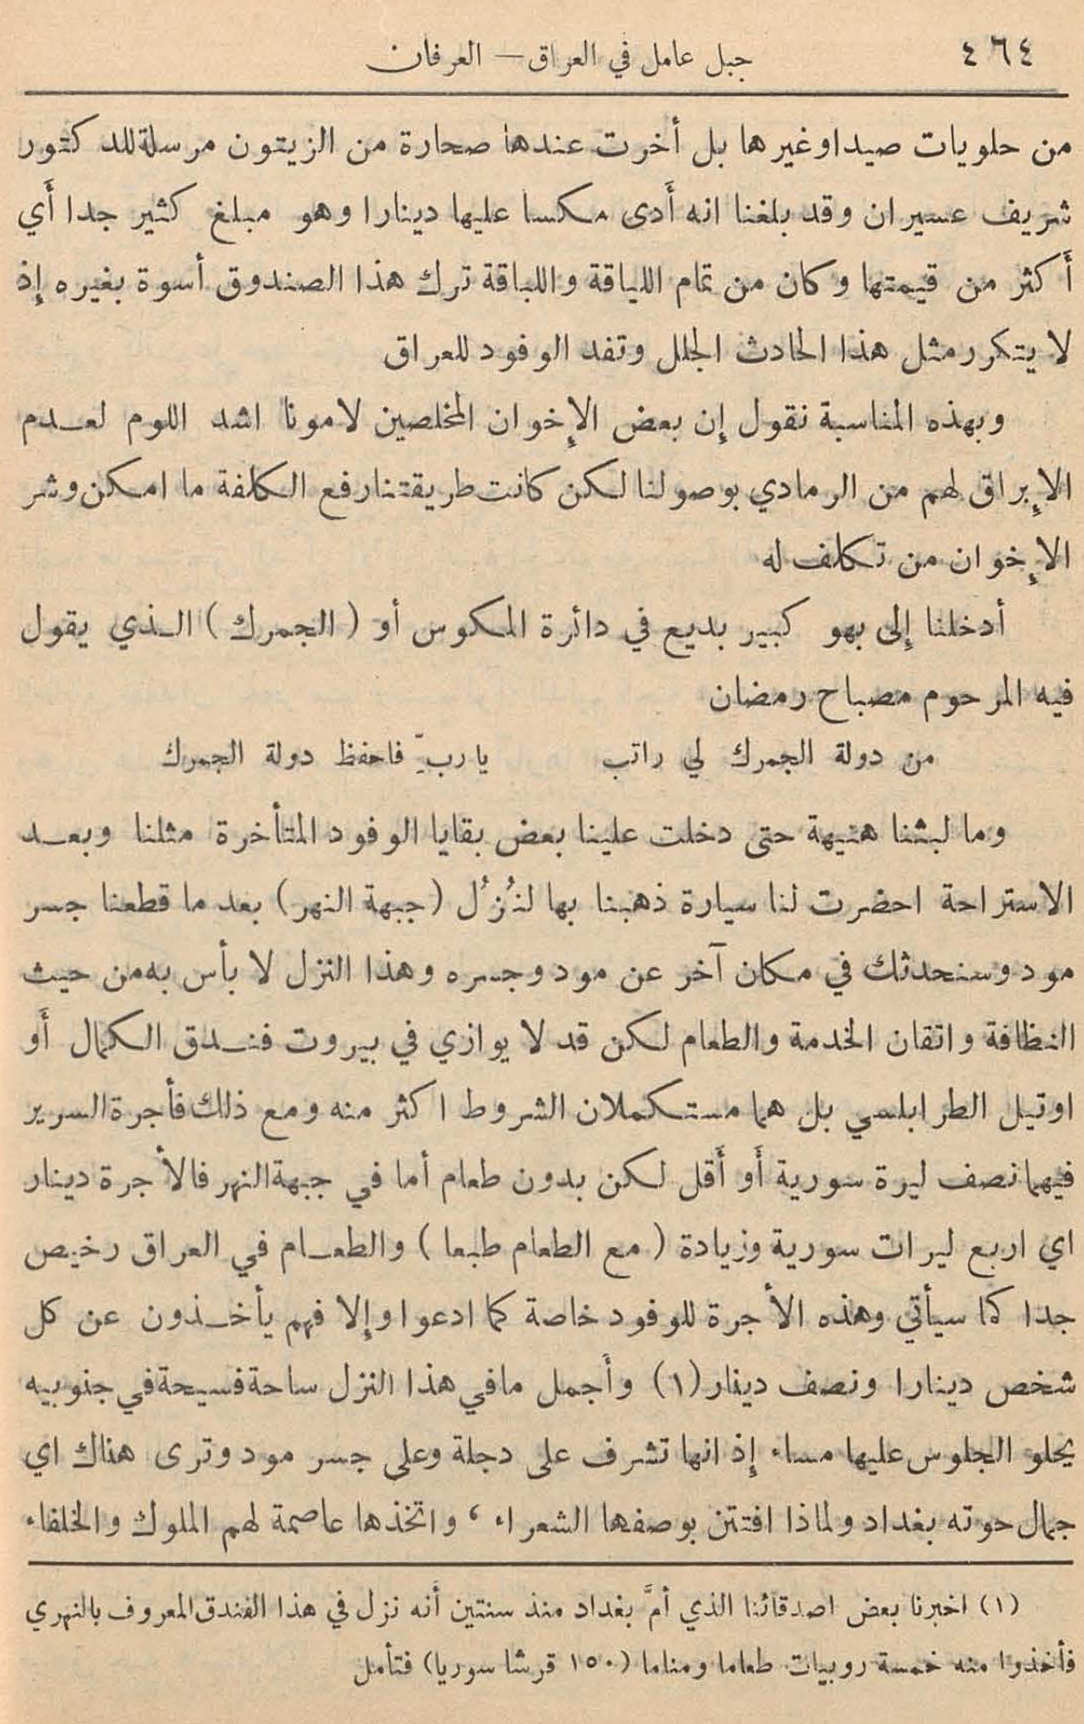 ٤٦٤ جبل عامل في العراق — العرفان
من حلويات صيدا وغيرها بل أخرت عندها صحارة من الزيتون مرسلة للدكتور
شريف عسيران وقد بلغنا انه أدى مكسا عليها دينارا وهو مبلغ كثير جدا أي
أكثر من قيمتها وكان من تمام اللياقة واللباقة ترك هذا الصندوق أسوة بغيره إذ
لا يتكرر مثل هذا الحادث الجلل وتفد الوفود للعراق
وبهذه المناسبة نقول إن بعض الإخوان المخلصين لامونا اشد اللوم لعدم
الإبراق لهم من الرمادي بوصولنا لكن كانت طريقتنا رفع الكلفة ما امكن وشر
الإخوان من تكلف له
أدخلنا إلى بهو كبير بديع في دائرة المكوس أو ( الجمرك ) الذي يقول
فيه المرحوم مصباح رمضان
من دولة الجمرك لي راتب يا ربّ فاحفظ دولة الجمرك
وما لبثنا هنيهة حتى دخلت علينا بعض بقايا الوفود المتأخرة مثلنا وبعد
الاستراحة احضرت لنا سيارة ذهبنا بها لنُزُل (جبهة النهر) بعد ما قطعنا جسر
مود وسنحدثك في مكان آخر عن مود وجسره وهذا النزل لا بأس به من حيث
النظافة واتقان الخدمة والطعام لكن قد لا يوازي في بيروت فندق الكمال أو
اوتيل الطرابلسي بل هما مستكملان الشروط اكثر منه ومع ذلك فأجرة السرير
فيهما نصف ليرة سورية أو أقل لكن بدون طعام أما في جبهة النهر فالأجرة دينار
اي اربع ليرات سورية وزيادة ( مع الطعام طبعا ) والطعام في العراق رخيص
جدا كما سيأتي وهذه الأجرة للوفود خاصة كما ادعوا وإلا فهم يأخذون عن كل
شخص دينارا ونصف دينار (١) وأجمل ما في هذا النزل ساحة فسيحة في جنوبيه
يحلو الجلوس عليها مساء إذ انها تشرف على دجلة وعلى جسر مود وترى هناك اي
جمال حوته بغداد ولماذا افتتن بوصفها الشعراء ، واتخذها عاصمة لهم الملوك والخلفاء
(١) اخبرنا بعض اصدقائنا الذي أمَّ بغداد منذ سنتين أنه نزل في هذا الفندق المعروف بالنهري
فأخذوا منه خمسة روبيات طعاما ومناما (١٥٠ قرشا سوريا) فتأمل